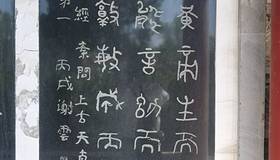 黃帝生而
能言幼而
敦敏成而
經 素問 上古天真
第一 丙戌 謝雲